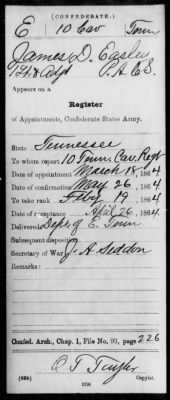 (CONFEDERATE.)
E 10 Cav Tenn
James D. Easley
1 Lt & Adjt P.A.C.S.
Appears on a
Register
of Appointments, Confederate States Army.
State Tennessee
To whom report 10 Tenn. Cav. Regt
Date of appointment March 18, 1864
Date of confirmation May 26, 1864
To take rank Feby 19, 1864
Date of acceptance April 26, 1864
Delivered Dept. of E. Tenn
Subsequent disposition
Secretary of War J. A. Seddon
Remarks:
Confed. Arch., Chap. 1, File No. 93, page 226
O. T. Taylor
Copyist.